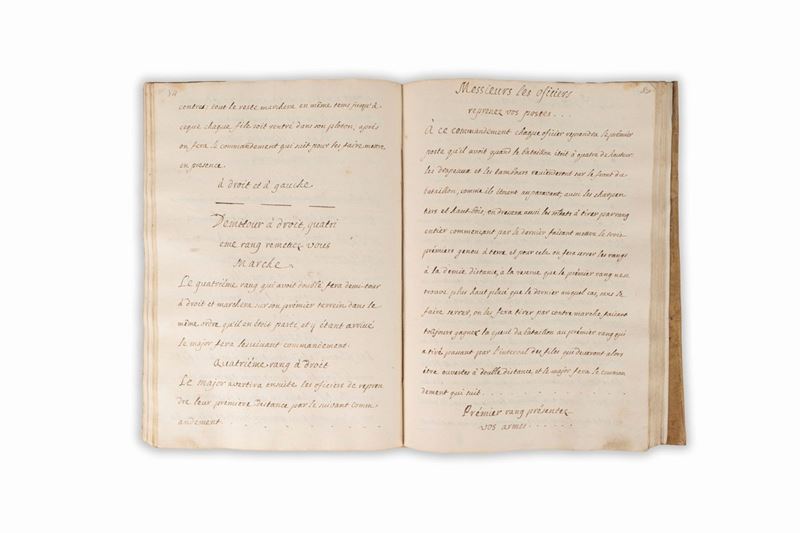 54
contres: tout le reste marchera en même tems jusqu'à
ceque chaque file soit rentré dans son ploton, après
on fera le commandement qui suit pour les faire mettre
en presence.
à droit et à gauche
Demitour à droit, quatri
eme rang remettez vous
Marche
Le quatriéme rang qui avoit doublé fera demi-tour
à droit et marchera sur son prémier terrein dans le
même ordre qu'il en étois parti et y étant arrivé
le major fera le suivant commandement.
Quatriéme rang à droit
Le major avertira ensuite les oficiers de repren
dre leur première distance par le suivant comm
andement
Messieurs les oficiers
reprenez vos postes...
À ce commandement chaque oficier reprendra le prémier
poste qu'il avoit quand le bataillon étoit à quatre de hauteur
les drapeaux et les tambours reviendront sur le front du
bataillon, comme ils étoient auparavant; aussi les charpen
tiers et haut-bois, on dressera aussi les soldats à tirer par rang
entier commençant par le dernier faisant mettre les trois
prémiers genou à terre et pour cela on fera serrer les rangs
à la demie distance, à la reserve que le prémier rang ne se
trouve plus haut placé que le dernier auquel cas, sans se
faire serrer, on les fera tirer par contre marche, faisant
toujours gagner la queue du bataillon au prémier rang qui
a tiré passant par l'interval des files qui devront alors
être ouvertes à double distance, et le major fera le comman
dement qui suit
Prémier rang présentez
vos armes